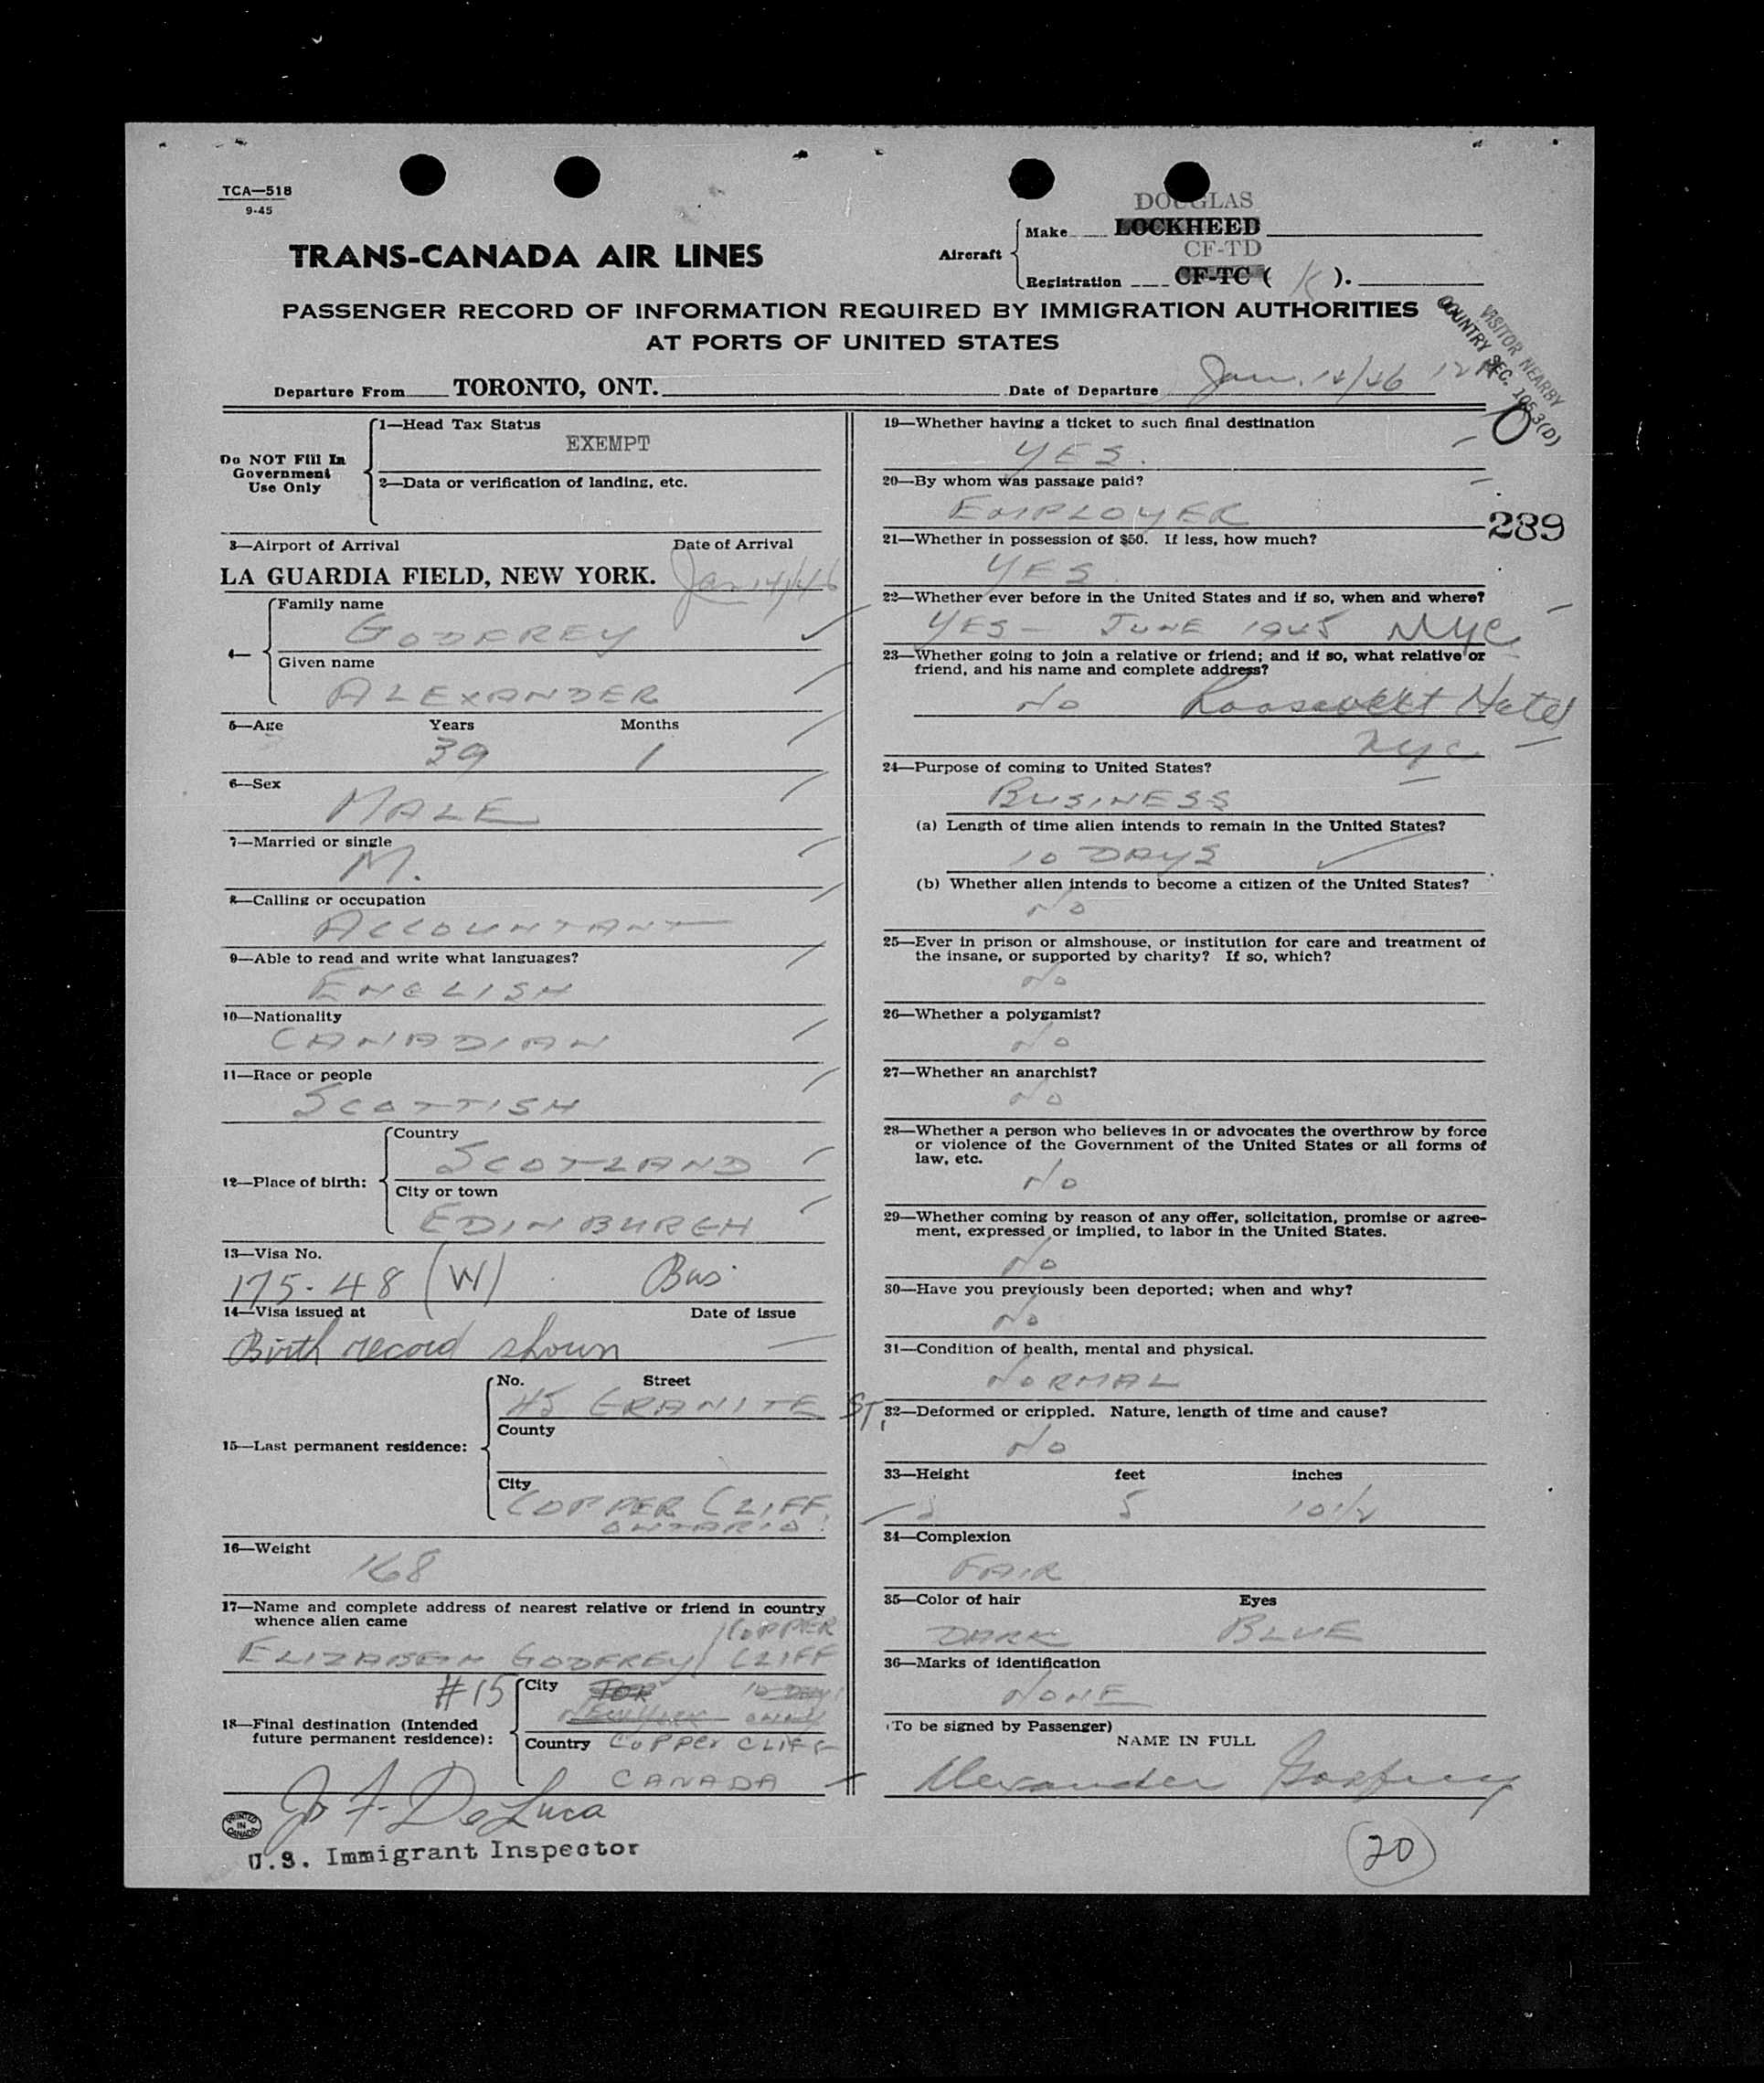 TCA—518
9-45
TRANS-CANADA AIR LINES
Aircraft
Make
DOUGLAS
LOCKHEED
CF-TD
Registration
CF-TC ( K ).
PASSENGER RECORD OF INFORMATION REQUIRED BY IMMIGRATION AUTHORITIES
AT PORTS OF UNITED STATES
VISITOR NEARBY
COUNTRY SEC. 105.3(D)
Departure From TORONTO, ONT. Date of Departure Jan. 14/46
Do NOT Fill In
Government
Use Only
1—Head Tax Status
EXEMPT
2—Data or verification of landing, etc.
3—Airport of Arrival Date of Arrival
LA GUARDIA FIELD, NEW YORK. Jan 14/46
4—
Family name
GODFREY
Given name
ALEXANDER
5—Age Years Months
39 1
6—Sex
MALE
7—Married or single
M.
8—Calling or occupation
ACCOUNTANT
9—Able to read and write what languages?
ENGLISH
10—Nationality
CANADIAN
11—Race or people
SCOTTISH
12—Place of birth:
Country
SCOTLAND
City or town
EDINBURGH
13—Visa No.
175-48 (W) Bus.
14—Visa issued at Date of issue
Birth record shown
15—Last permanent residence:
No. Street
45 GRANITE ST.
County
City
COPPER CLIFF,
ONTARIO.
16—Weight
168
17—Name and complete address of nearest relative or friend in country
whence alien came
COPPER
ELIZABETH GODFREY CLIFF
#15
18—Final destination (Intended
future permanent residence):
City
TOR 10 DAYS
NEW YORK ONLY
Country COPPER CLIFF
CANADA
J. F. DeLuca
PRINTED
IN
CANADA
U.S. Immigrant Inspector
19—Whether having a ticket to such final destination
YES.
20—By whom was passage paid?
EMPLOYER
239
21—Whether in possession of $50. If less, how much?
YES
22—Whether ever before in the United States and if so, when and where?
YES — JUNE 1945 NYC
23—Whether going to join a relative or friend; and if so, what relative or
friend, and his name and complete address?
NO Roosevelt Hotel
NYC
24—Purpose of coming to United States?
BUSINESS
(a) Length of time alien intends to remain in the United States?
10 DAYS
(b) Whether alien intends to become a citizen of the United States?
NO
25—Ever in prison or almshouse, or institution for care and treatment of
the insane, or supported by charity? If so, which?
NO
26—Whether a polygamist?
NO
27—Whether an anarchist?
NO
28—Whether a person who believes in or advocates the overthrow by force
or violence of the Government of the United States or all forms of
law, etc.
NO
29—Whether coming by reason of any offer, solicitation, promise or agree-
ment, expressed or implied, to labor in the United States.
NO
30—Have you previously been deported; when and why?
NO
31—Condition of health, mental and physical.
NORMAL
32—Deformed or crippled. Nature, length of time and cause?
NO
33—Height feet inches
5 10 1/2
34—Complexion
FAIR
35—Color of hair Eyes
DARK BLUE
36—Marks of identification
NONE
(To be signed by Passenger)
NAME IN FULL
Alexander Godfrey
20